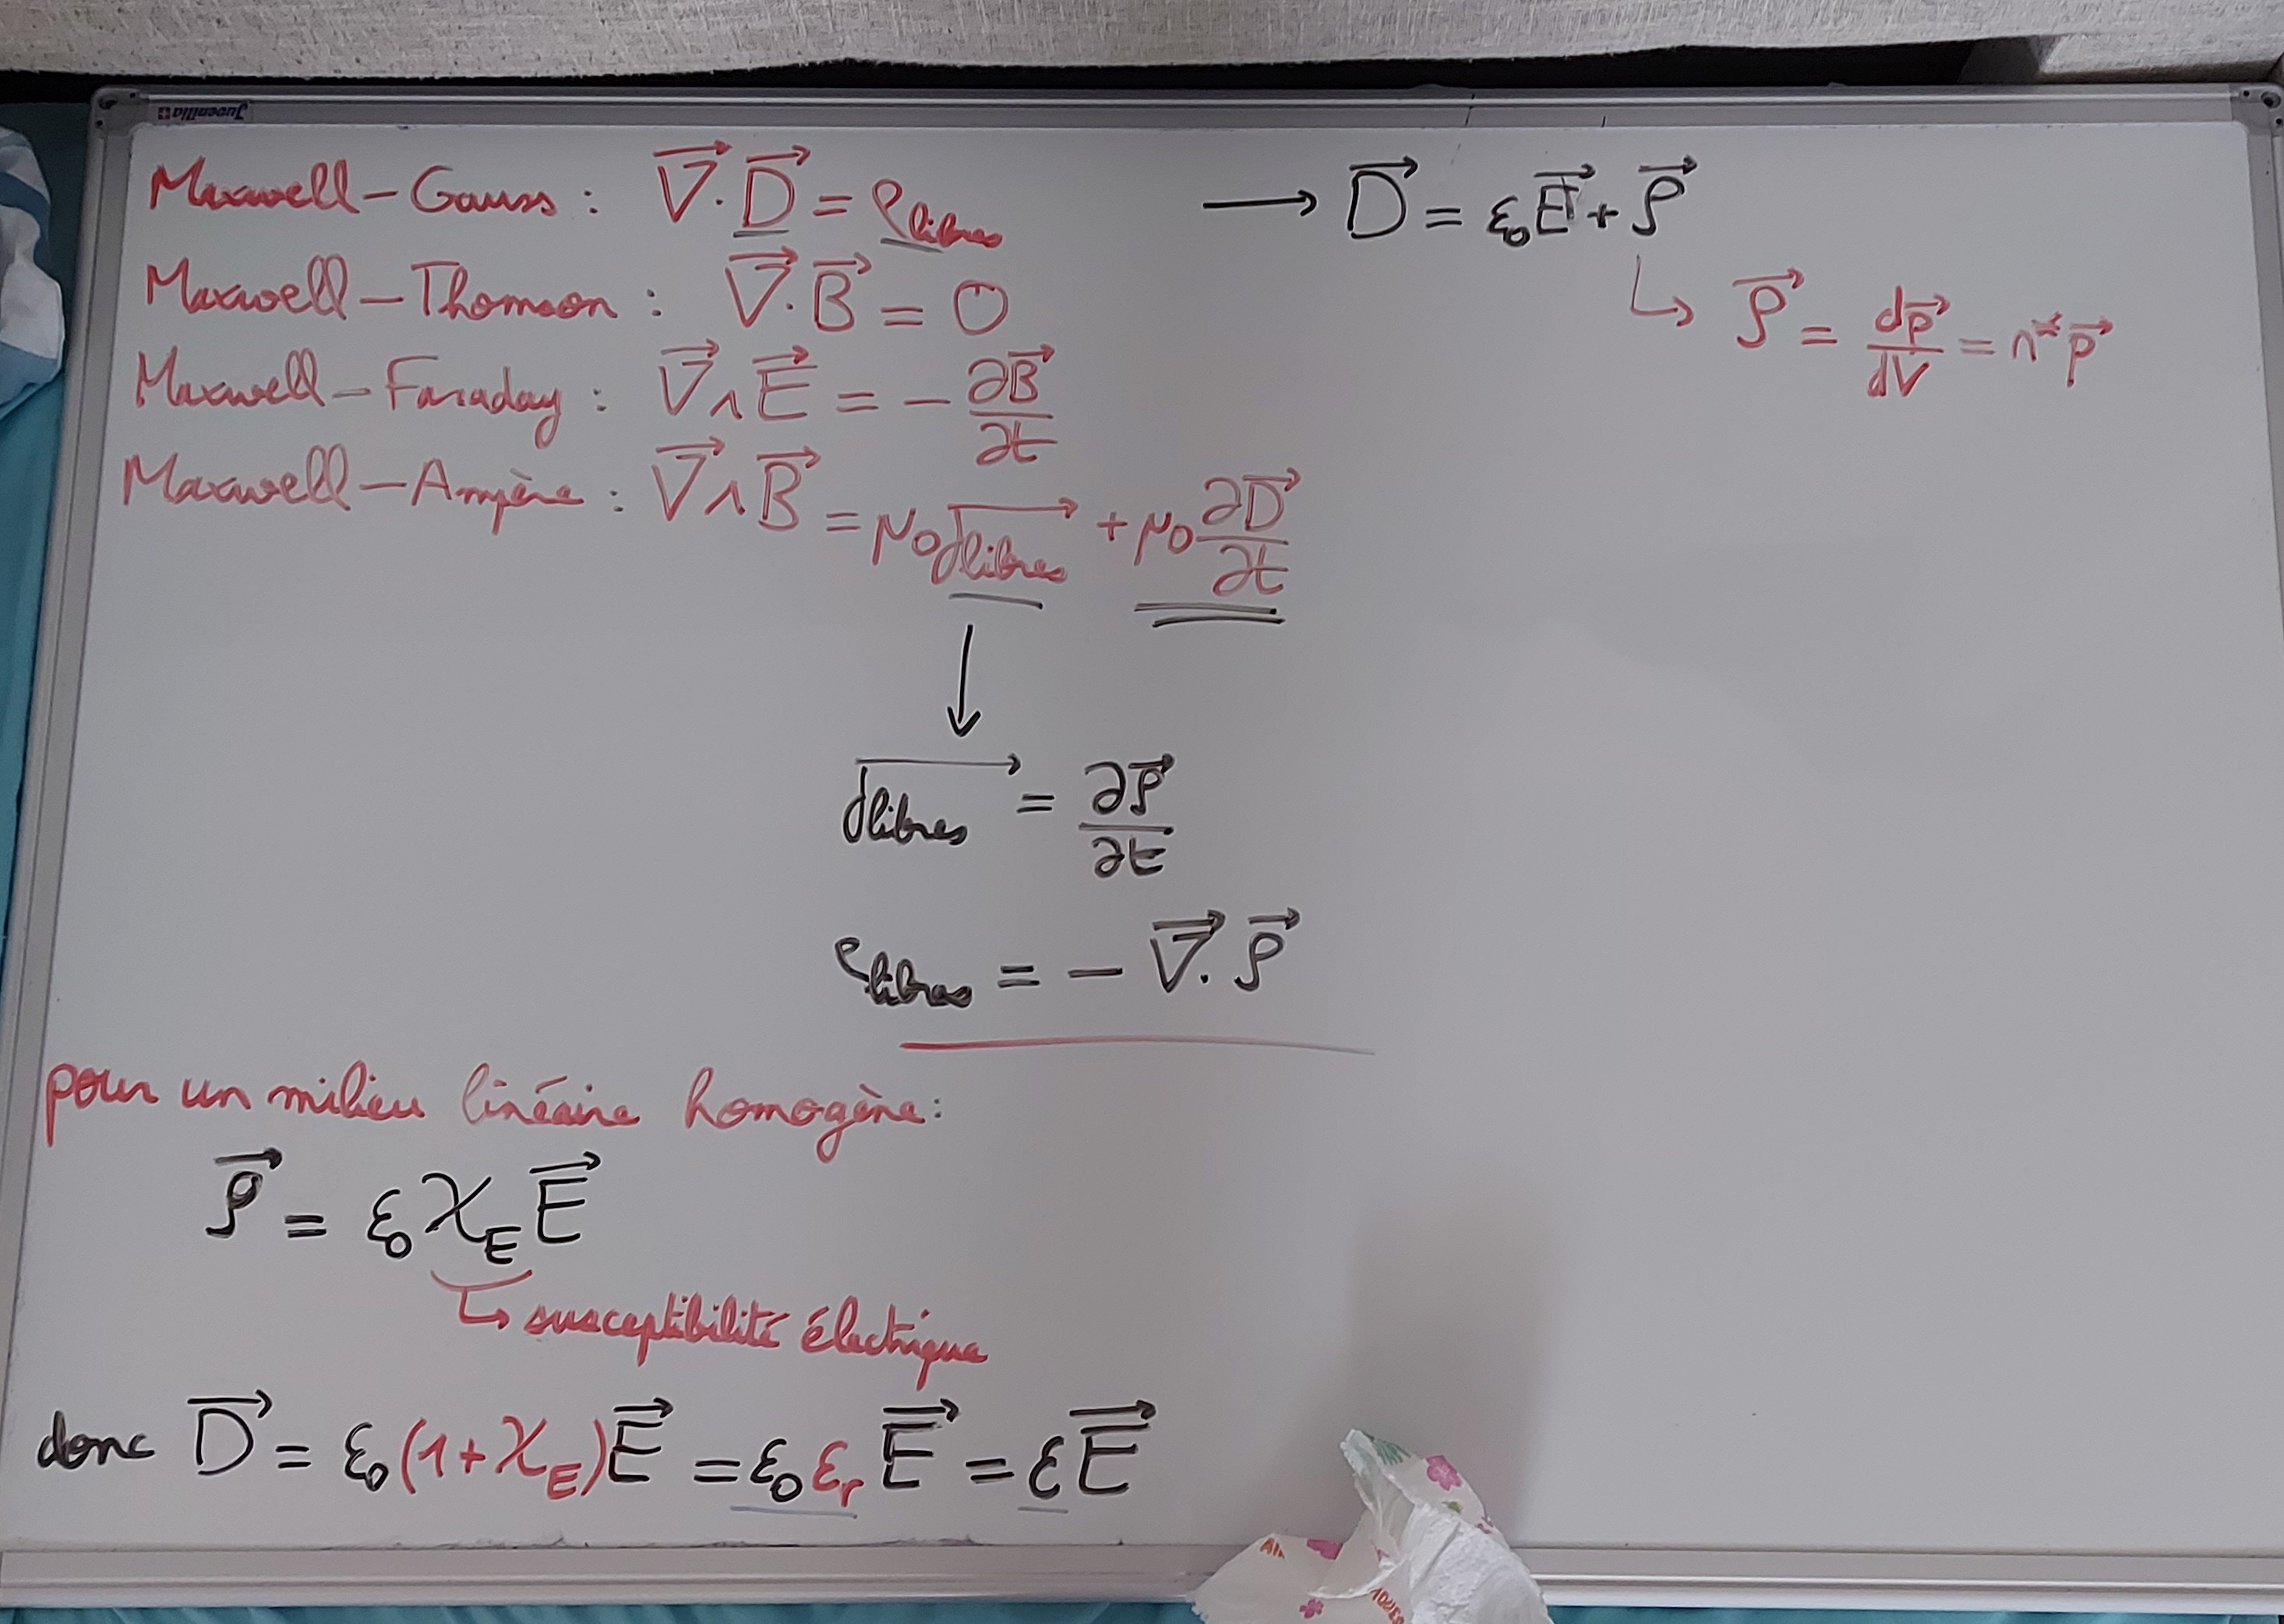 Juvenilia
Maxwell-Gauss : ∇⃗·D⃗ = ρlibres → D⃗ = ε₀E⃗ + P⃗
↳ P⃗ = dp⃗/dV = n*p⃗
Maxwell-Thomson : ∇⃗·B⃗ = 0
Maxwell-Faraday : ∇⃗∧E⃗ = -∂B⃗/∂t
Maxwell-Ampère : ∇⃗∧B⃗ = μ₀j⃗libres + μ₀ ∂D⃗/∂t
↓
j⃗libres = ∂P⃗/∂t
ρlibres = - ∇⃗·P⃗
pour un milieu linéaire homogène :
P⃗ = ε₀χ_E E⃗
↳ susceptibilité électrique
donc D⃗ = ε₀(1+χ_E)E⃗ = ε₀εᵣE⃗ = εE⃗